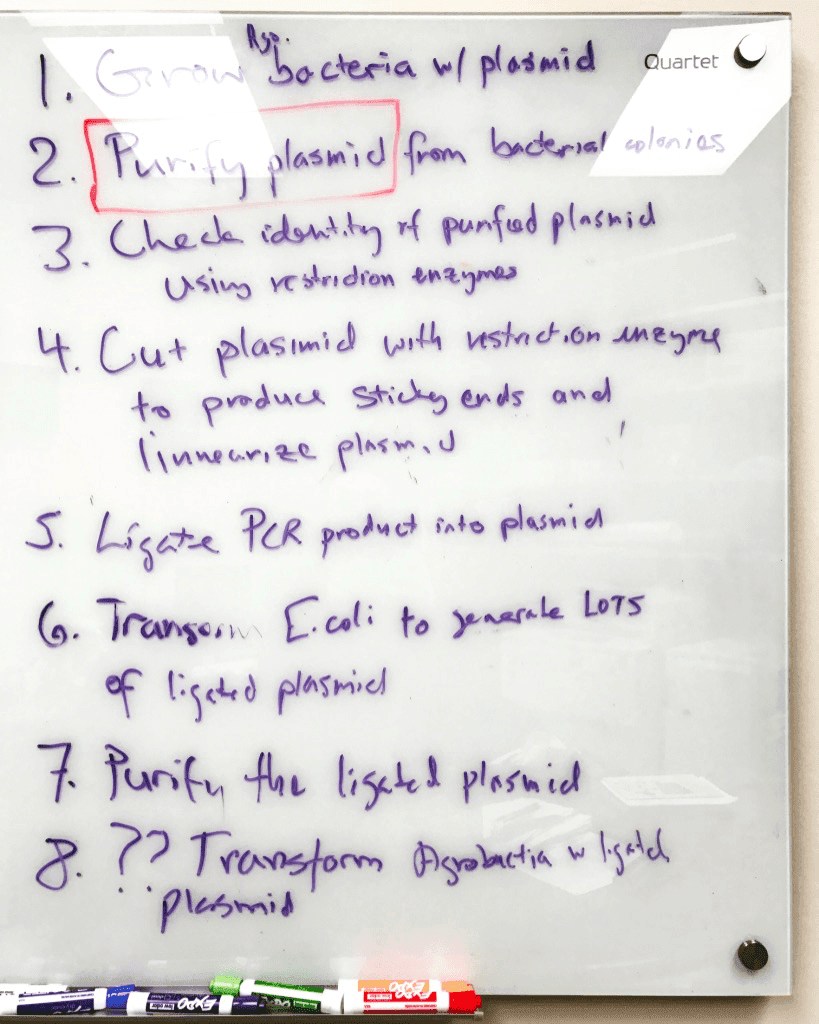 1. Grow bacteria w/ plasmid
Quartet
2. Purify plasmid from bacterial colonies
3. Check identity of purified plasmid
using restridion enzymes
4. Cut plasimid with restriction enzyme
to produce sticky ends and
linnearize plasmid
5. Ligate PCR product into plasmid
6. Transorm E.coli to generate LOTS
of ligated plasmid
7. Purify the ligated plasmid
8. ?? Transform Agrobactia w ligated
plasmid
EXPO
EXPO
EXPO